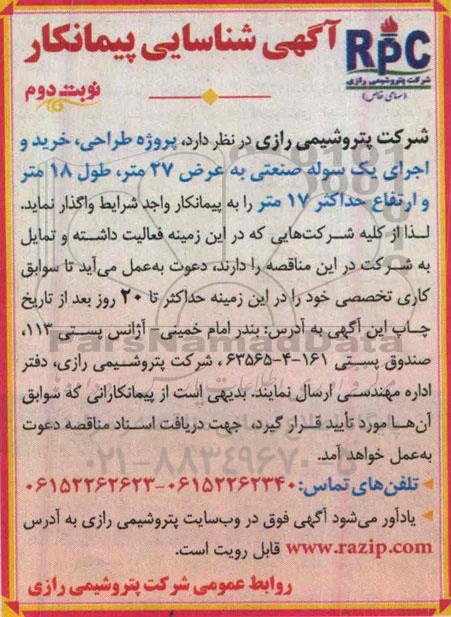 آگهی شناسایی پیمانکار
RPC
شرکت پتروشیمی رازی
(سهامی خاص)
نوبت دوم
شرکت پتروشیمی رازی در نظر دارد، پروژه طراحی، خرید و
اجرای یک سوله صنعتی به عرض ۲۷ متر، طول ۱۸ متر
و ارتفاع حداکثر ۱۷ متر را به پیمانکار واجد شرایط واگذار نماید.
لـذا از کلیه شـرکت‌هایی که در این زمینه فعالیت داشته و تمایل
به شـرکت در این مناقصه را دارند، دعوت به‌عمل می‌آید تا سوابق
کاری تخصصی خود را در این زمینه حداکثر تا ۲۰ روز بعد از تاریخ
چـاپ این آگهی به آدرس: بندر امام خمینی- آژانس پسـتی ۱۱۳،
صندوق پسـتی ۱۶۱-۴-۶۳۵۶۵ ، شرکت پتروشـیمی رازی، دفتر
اداره مهندسـی ارسال نمایند. بدیهی است از پیمانکارانی که سوابق
آن‌هـا مورد تأیید قـرار گیرد، جهت دریافت اسـناد مناقصه دعوت
به‌عمل خواهد آمد.
تلفن‌های تماس: ۰۶۱۵۲۲۶۲۳۴۰-۰۶۱۵۲۲۶۲۶۲۳
یادآور می‌شود آگهی فوق در وب‌سایت پتروشیمی رازی به آدرس
www.razip.com قابل رویت است.
روابط عمومی شرکت پتروشیمی رازی
FarsNamadData
۰۲۱-۸۸۳۴۹۶۷۰-۵